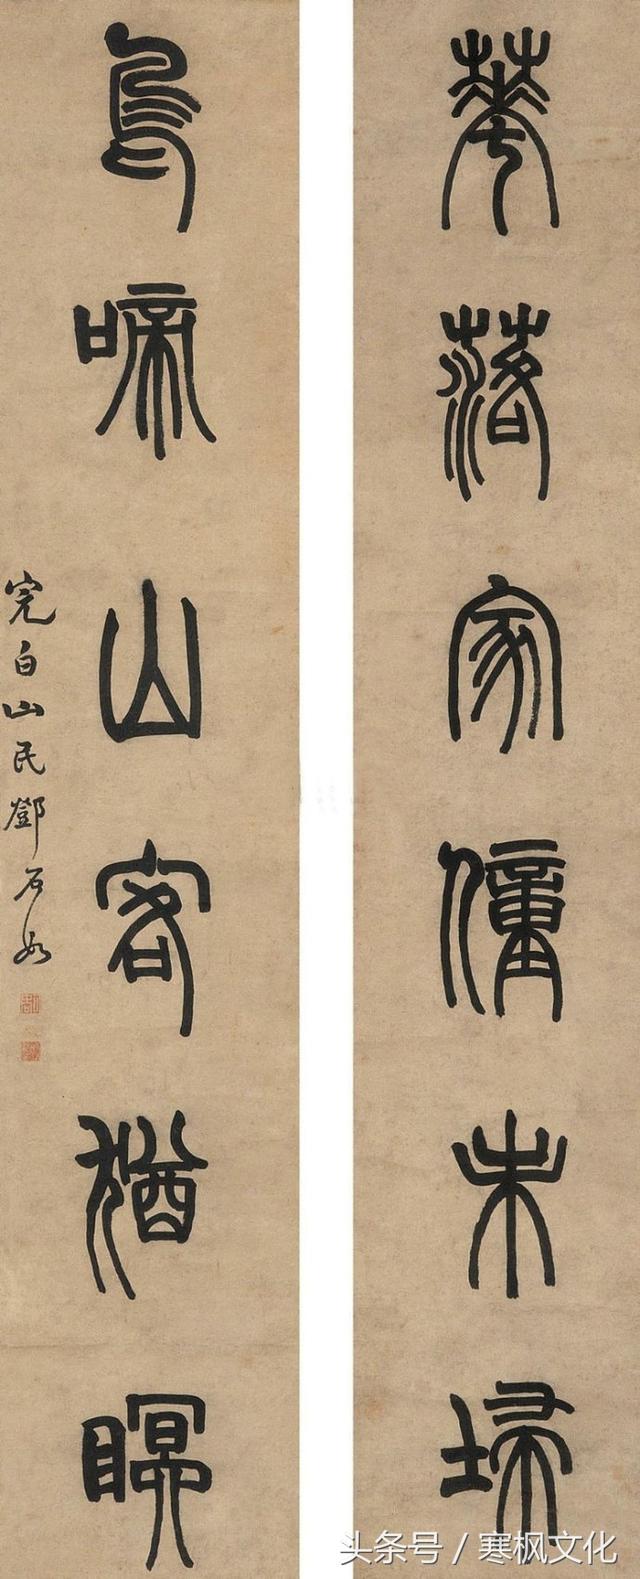 華落家僮未埽
鳥啼山客猶瞑
完白山民鄧石如
头条号 / 寒枫文化